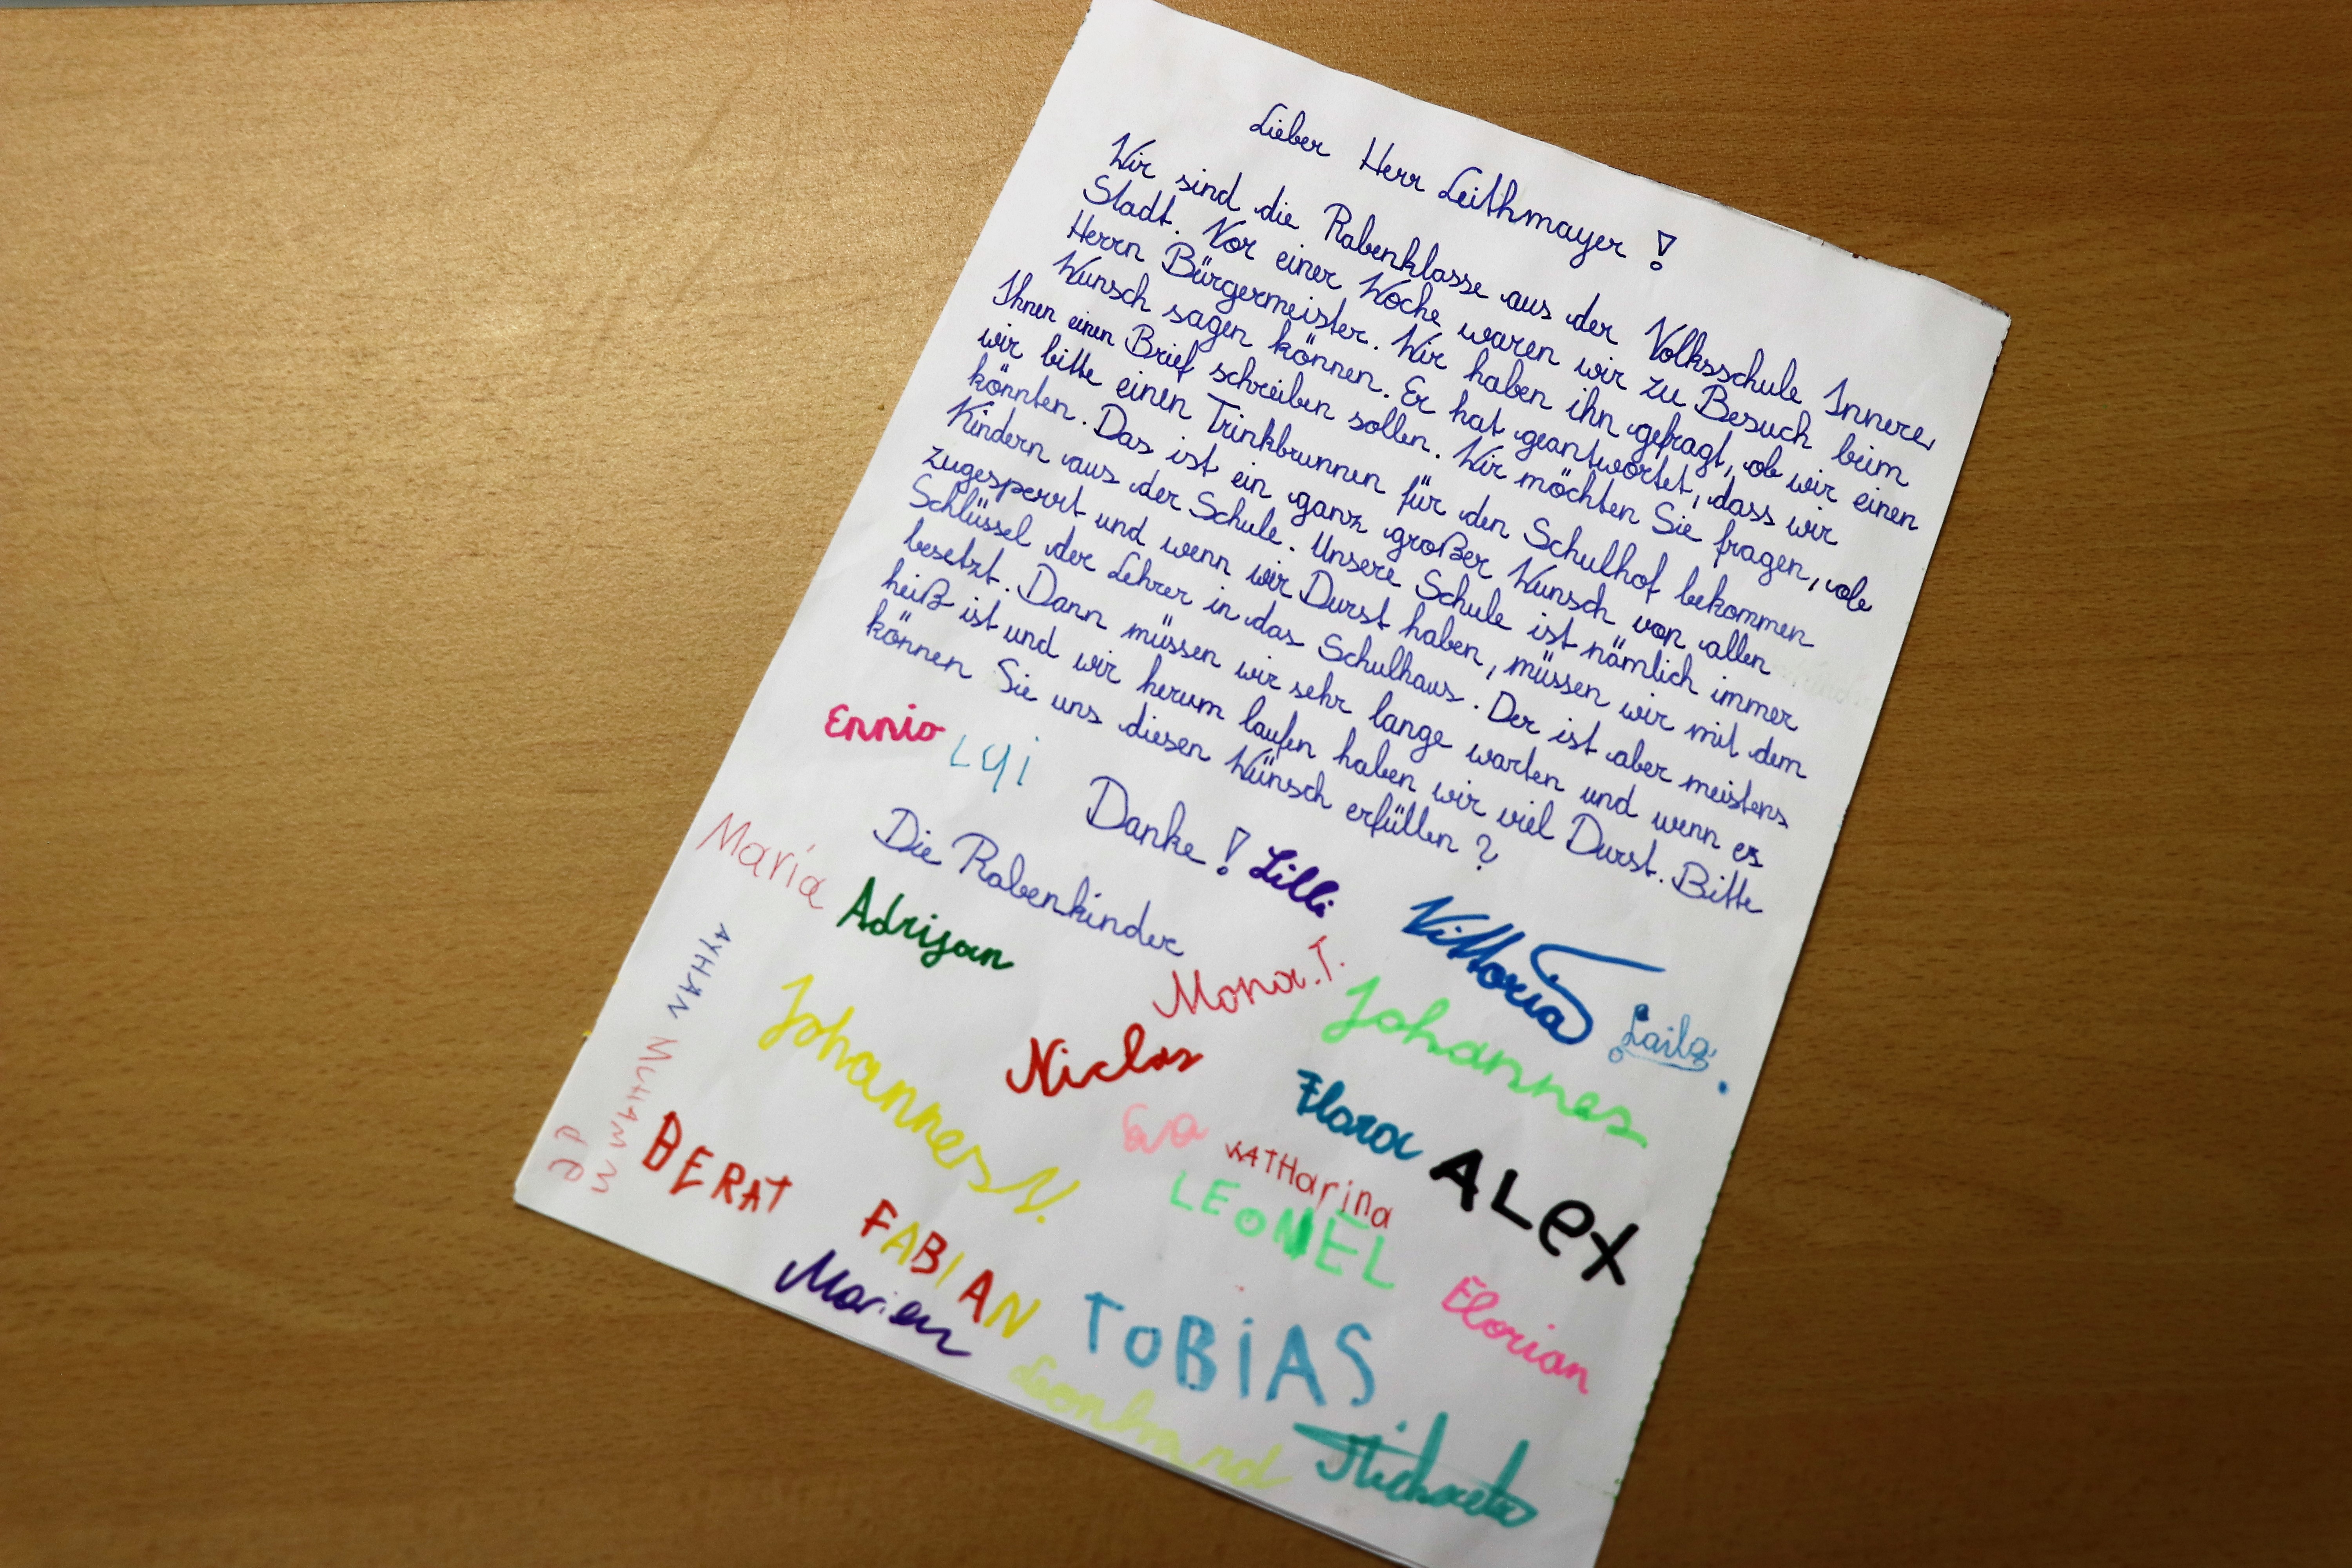 Lieber Herr Leithmayer!
Wir sind die Rabenklasse aus der Volksschule Innere
Stadt. Vor einer Woche waren wir zu Besuch beim
Herrn Bürgermeister. Wir haben ihn gefragt, ob wir einen
Wunsch sagen können. Er hat geantwortet, dass wir
Ihnen einen Brief schreiben sollen. Wir möchten Sie fragen, ob
wir bitte einen Trinkbrunnen für den Schulhof bekommen
könnten. Das ist ein ganz großer Wunsch von allen
Kindern aus der Schule. Unsere Schule ist nämlich immer
zugesperrt und wenn wir Durst haben, müssen wir mit dem
Schlüssel der Lehrer in das Schulhaus. Der ist aber meistens
besetzt. Dann müssen wir sehr lange warten und wenn es
heiß ist und wir herum laufen haben wir viel Durst. Bitte
können Sie uns diesen Wünsch erfüllen?
Ennio
Danke!
Die Rabenkinder
Lilli
Maria
Adrijan
Vittoria
Mona.T.
Laila
AYHAN
Johannes
Niclas
Johannes V.
Flora
Eva
KATHarina
ALex
BERAT
LEONEL
FABIAN
Florian
Marien
TOBiAS
Leonhard